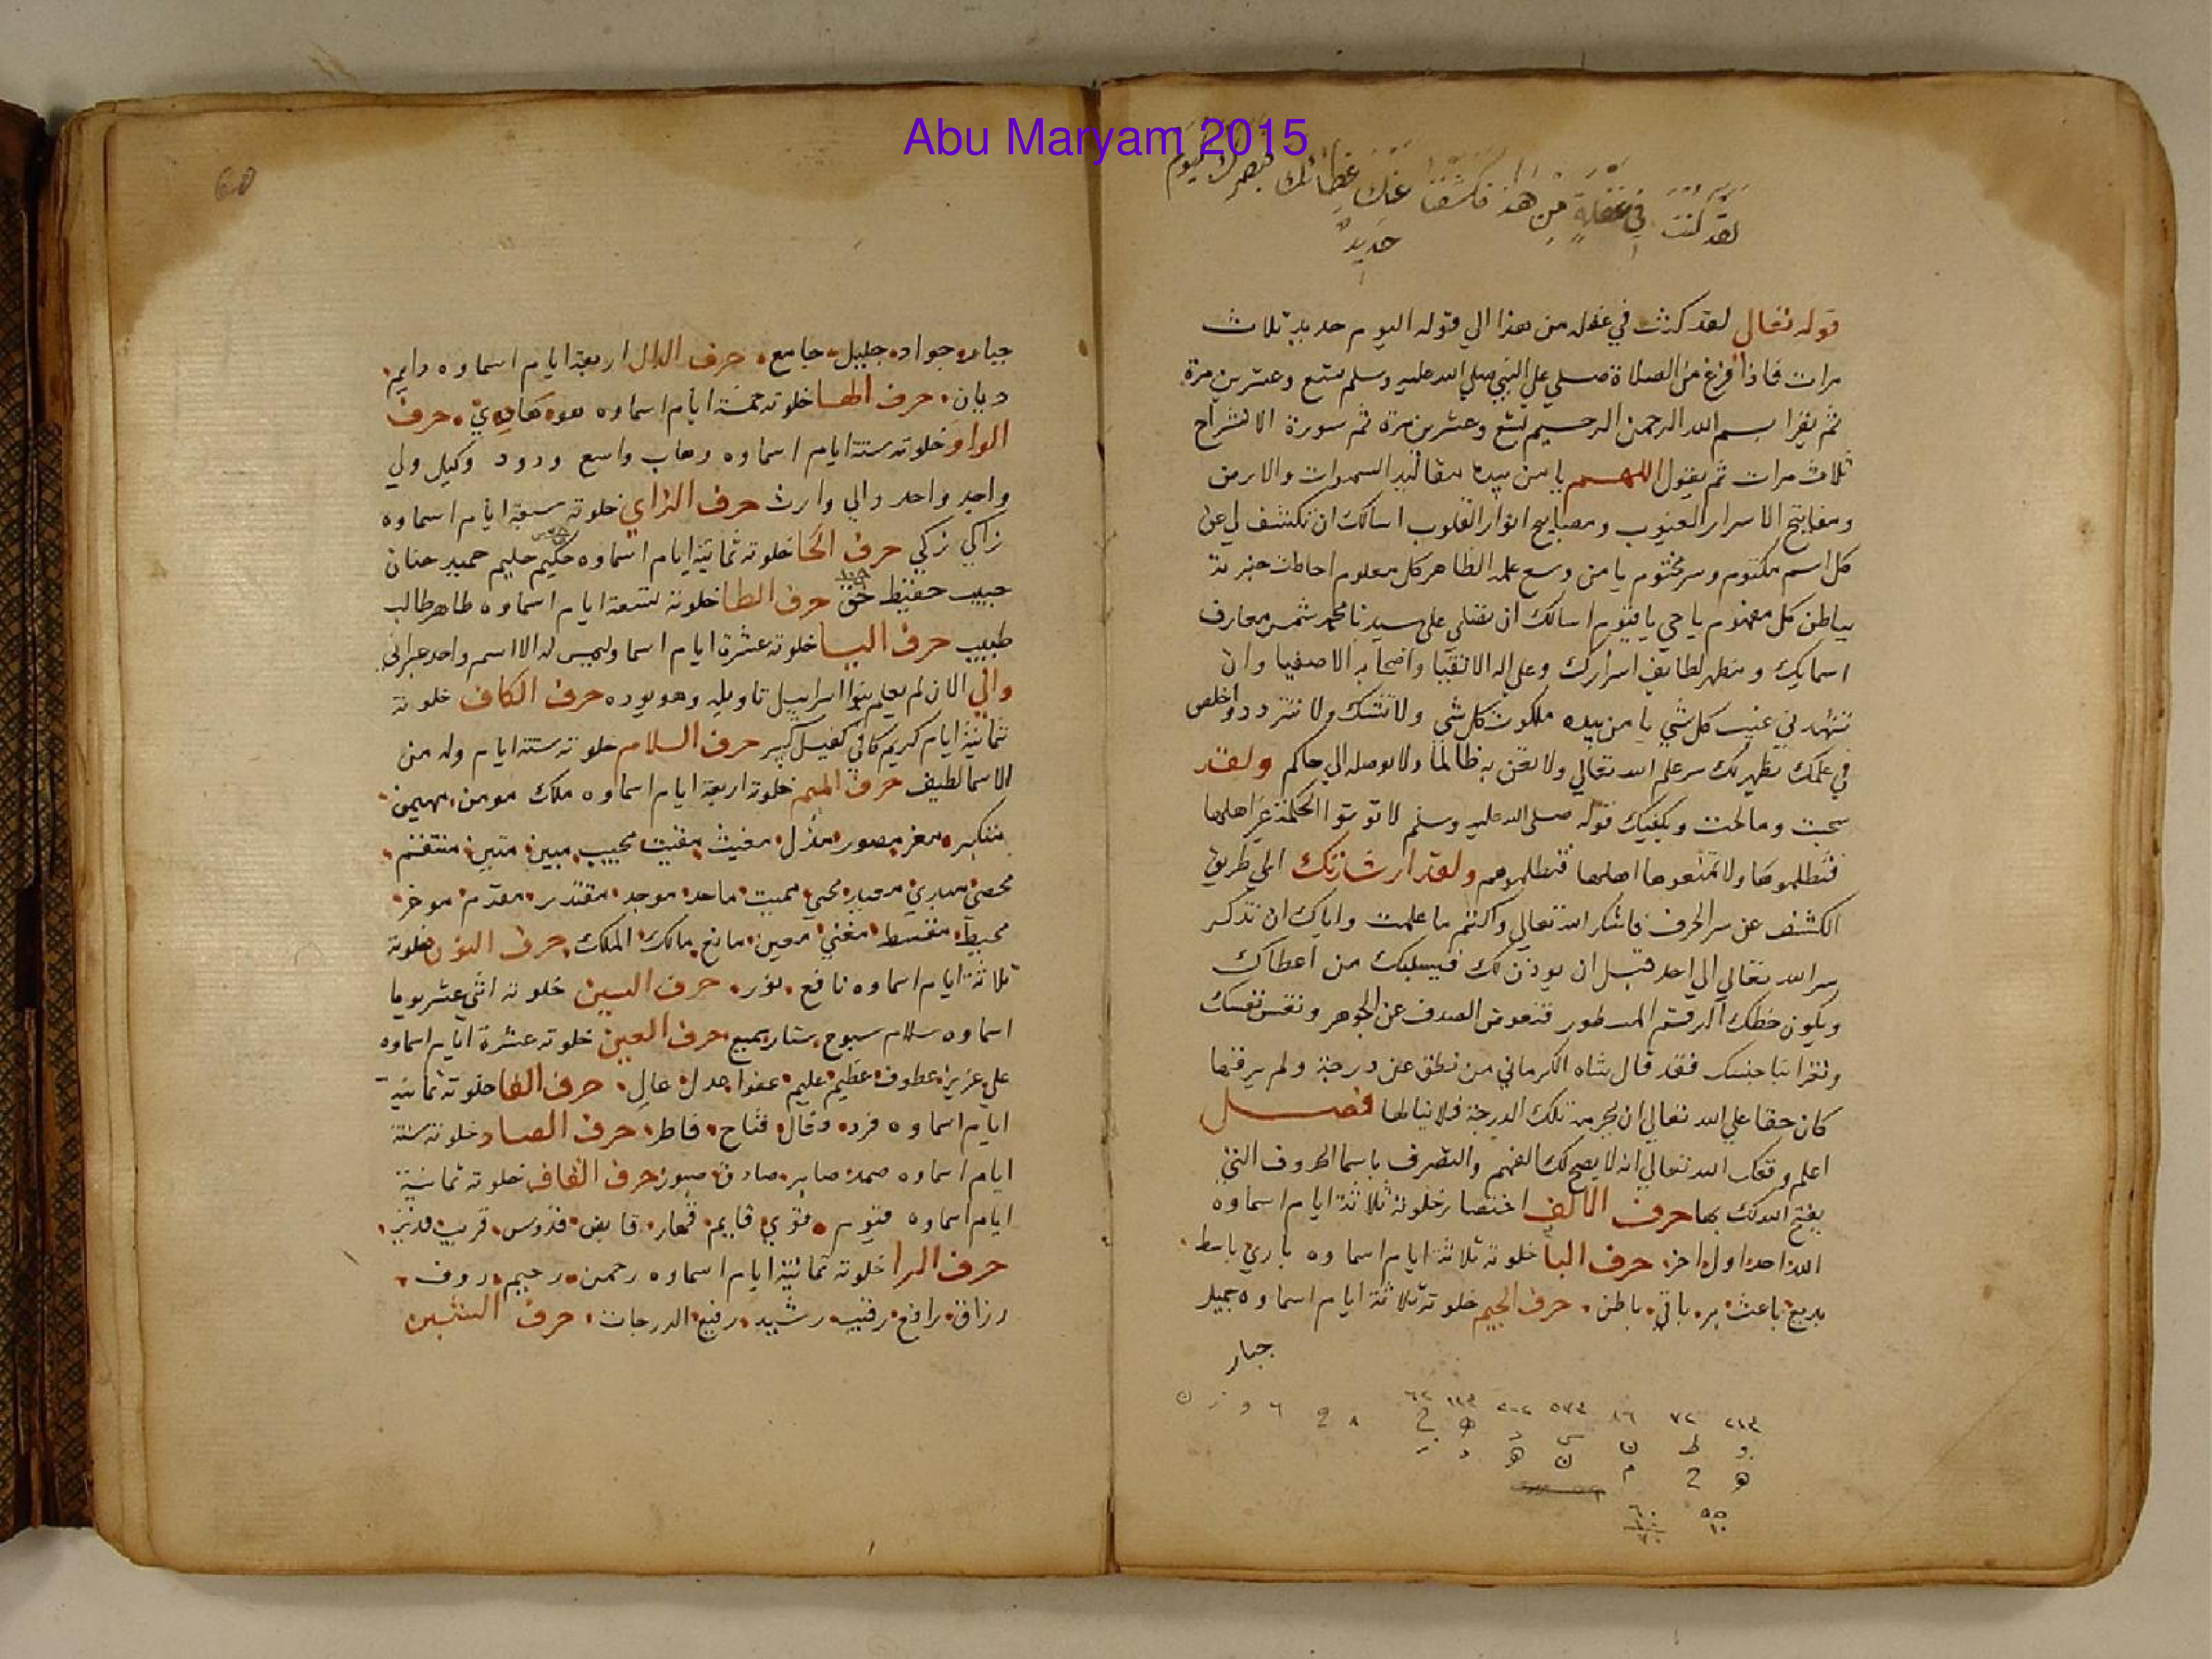 Abu Maryam 2015
لقد كنت في غفلة من هذا فكشفنا عنك غطائك فبصرك اليوم
حديد
قوله تعالي لقد كنت في غفله من هذا الي قوله اليوم حديد ثلاث
مرات فاذا فرغ من الصلاة صلي علي النبي صلي الله عليه وسلم سبع وعشرين مرة
ثم يقرا بسم الله الرحمن الرحيم تسع وعشرين مرة ثم سورة الانشراح
ثلاث مرات ثم يقول اللهم يا من بيده مقاليد السموات والارض
ومفاتيح الاسرار الغيوب ومصابيح انوار القلوب اسالك ان تكشف لي عن
كل اسم مكتوم وسر مختوم يا من وسع علمه الظاهر كل معلوم احاطت خبرته
بباطن كل مفهوم يا حي يا قيوم اسالك ان تصلي علي سيدنا محمد شمس معارف
اسمايك ومظهر لطايف اسرارك وعلي اله الاتقيا واصحابه الاصفيا وان
تشهدني غيب كل شي يا من بيده ملكوت كل شي ولا تشك ولا تتردد واخلص
في علمك يظهر لك سر علم الله تعالي ولا تعن به ظالما ولا توصله الي حاكم ولقد
سمحت وما لحت ويكفيك قوله صلي الله عليه وسلم لا توتوا الحكمة غير اهلها
فتظلموها ولا تمنعوها اهلها فتظلموهم ولقد ارشدتك الي طريق
الكشف عن سر الحرف فاشكر الله تعالي واكتم ما علمت واياك ان تذكر
سر الله تعالي الي احد قبل ان يوذن لك فيسلبك من اعطاك
ويكون حظك الرقم المسطور فتعوض الصدف عن الجوهر
فقد قال شاه الكرماني من نطق عن درجة ولم يرقها
كان حقا علي الله تعالي ان يحرمه تلك الدرجة فلا ينالها فصل
اعلم وفقك الله تعالي انه لا يصح لك الفهم والتصرف باسما الحروف التي
يفتح الله لك بها حرف الالف اختصار خلوته ثلاثة ايام اسماوه
الله احد اول اخر حرف البا خلوته ثلاثة ايام اسماوه باري باسط
بديع باعث بر باقي باطن حرف الجيم خلوته ثلاثة ايام اسماوه جميل
جبار
جبار جواد جليل جامع حرف الدال اربعة ايام اسماوه دايم
ديان حرف الها خلوته خمسة ايام اسماوه هو هادي حرف
الواو خلوته ستة ايام اسماوه وهاب واسع ودود وكيل ولي
واجد واحد والي وارث حرف الزاي خلوته سبعة ايام اسماوه
زاكي زكي حرف الحا خلوته ثمانية ايام اسماوه حكيم حليم حميد حنان
حبيب حفيظ حق حرف الطا خلوته تسعة ايام اسماوه طاهر طالب
طبيب حرف اليا خلوته عشرة ايام اسما وليس له الا اسم واحد عبراني
والي الان لم يعلم بنوا اسراييل تاويله وهو يوده حرف الكاف خلوته
ثمانية ايام كريم كافي كفيل كبير حرف اللام خلوته ستة ايام وله من
الاسما لطيف حرف الميم خلوته اربعة ايام اسماوه ملك مومن مهيمن
متكبر معز مصور مذل مغيث مقيت مجيب مبين متين منتقم
محصي مبدي معيد محي مميت ماجد موجد مقتدر مقدم موخر
محيط مقسط مغني معين مانع مالك الملك حرف النون خلوته
ثلاثة ايام اسماوه نافع نور حرف السين خلوته اثني عشر يوما
اسماوه سلام سبوح ستار سميع حرف العين خلوته عشرة ايام اسماوه
علي عزيز عطوف عظيم عليم عفوا عدل عال حرف الفا خلوته ثمانية
ايام اسماوه فرد فعال فتاح فاطر حرف الصاد خلوته ستة
ايام اسماوه صمد صابر صادق صبور حرف القاف خلوته ثمانية
ايام اسماوه قيوم قوي قايم قهار قابض قدوس قريب قدير
حرف الرا خلوته ثمانية ايام اسماوه رحمن رحيم روف
رزاق رافع رقيب رشيد رفيع الدرجات حرف الشين